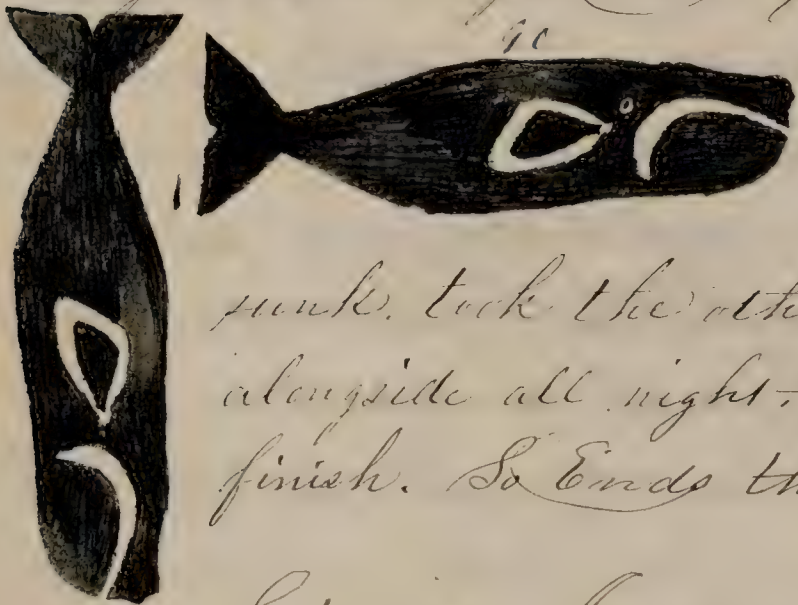 90
sunk. took the oth
alongside all night.
finish. So Ends th